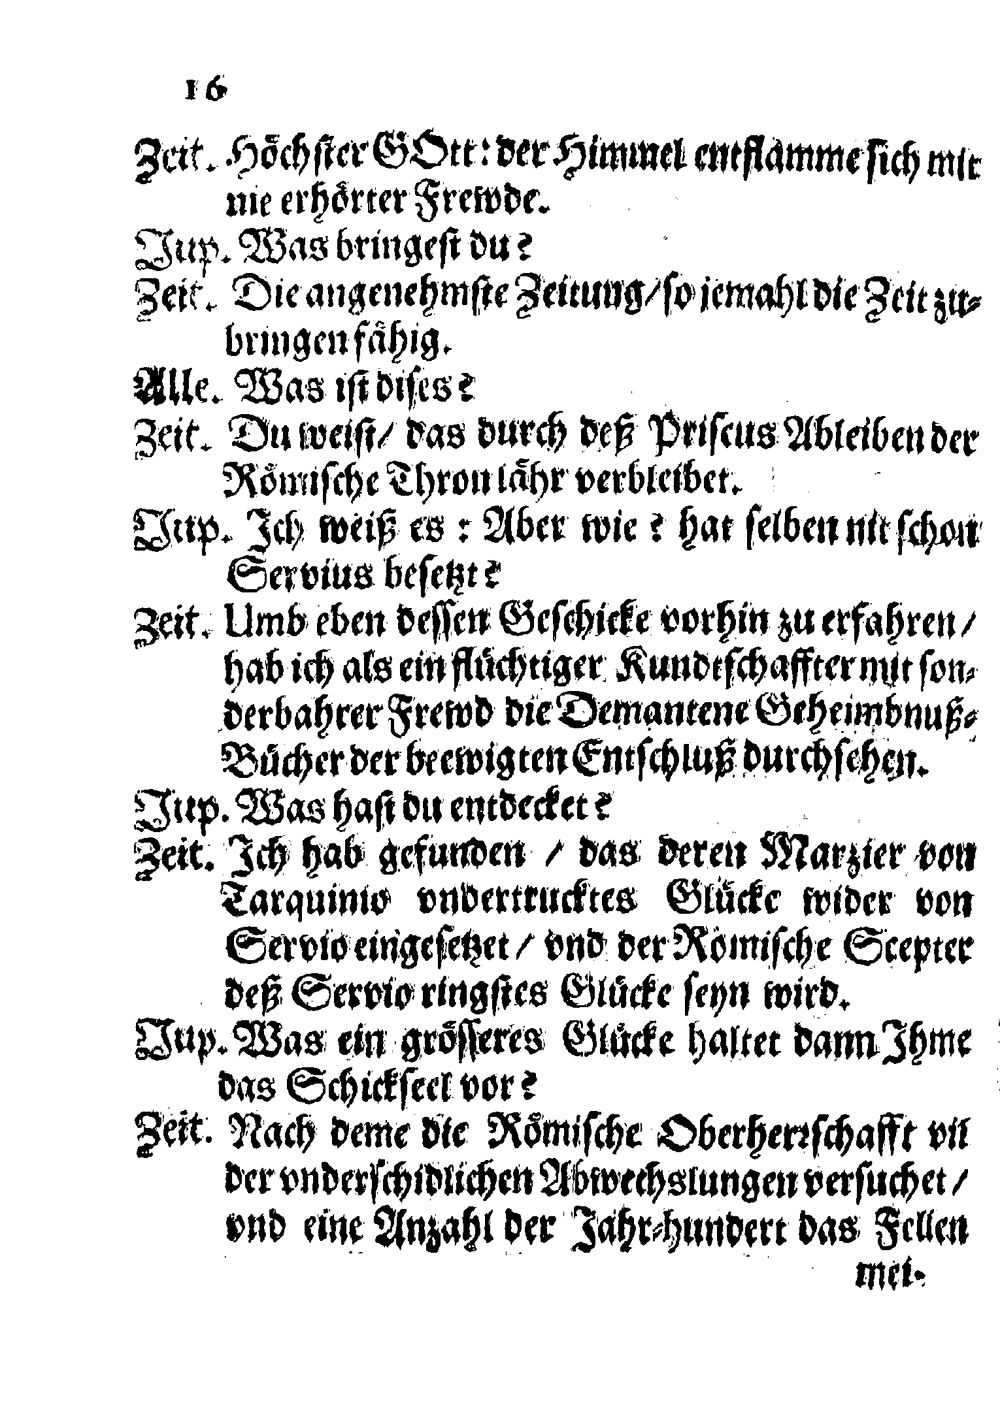 16
Zeit. Höchster GOtt: der Himmel entflamme sich mit
nie erhörter Frewde.
Jup. Was bringest du?
Zeit. Die angenehmste Zeitung/ so jemahl die Zeit zu-
bringen fähig.
Alle. Was ist dises?
Zeit. Du weist/ das durch deß Priscus Ableiben der
Römische Thron lähr verbleibet.
Jup. Ich weiß es: Aber wie? hat selben nit schon
Servius besetzt?
Zeit. Umb eben dessen Geschicke vorhin zu erfahren/
hab ich als ein flüchtiger Kundtschaffter mit son-
derbahrer Frewd die Demantene Geheimbnuß-
Bücher der beewigten Entschluß durchsehen.
Jup. Was hast du entdecket?
Zeit. Ich hab gefunden / das deren Marzier von
Tarquinio vndertrucktes Glücke wider von
Servio eingesetzet/ vnd der Römische Scepter
deß Servio ringstes Glücke seyn wird.
Jup. Was ein grösseres Glücke haltet dann Ihme
das Schickseel vor?
Zeit. Nach deme die Römische Oberherrschafft vil
der vnderschidlichen Abwechslungen versuchet/
vnd eine Anzahl der Jahr-hundert das Fellen
mei-